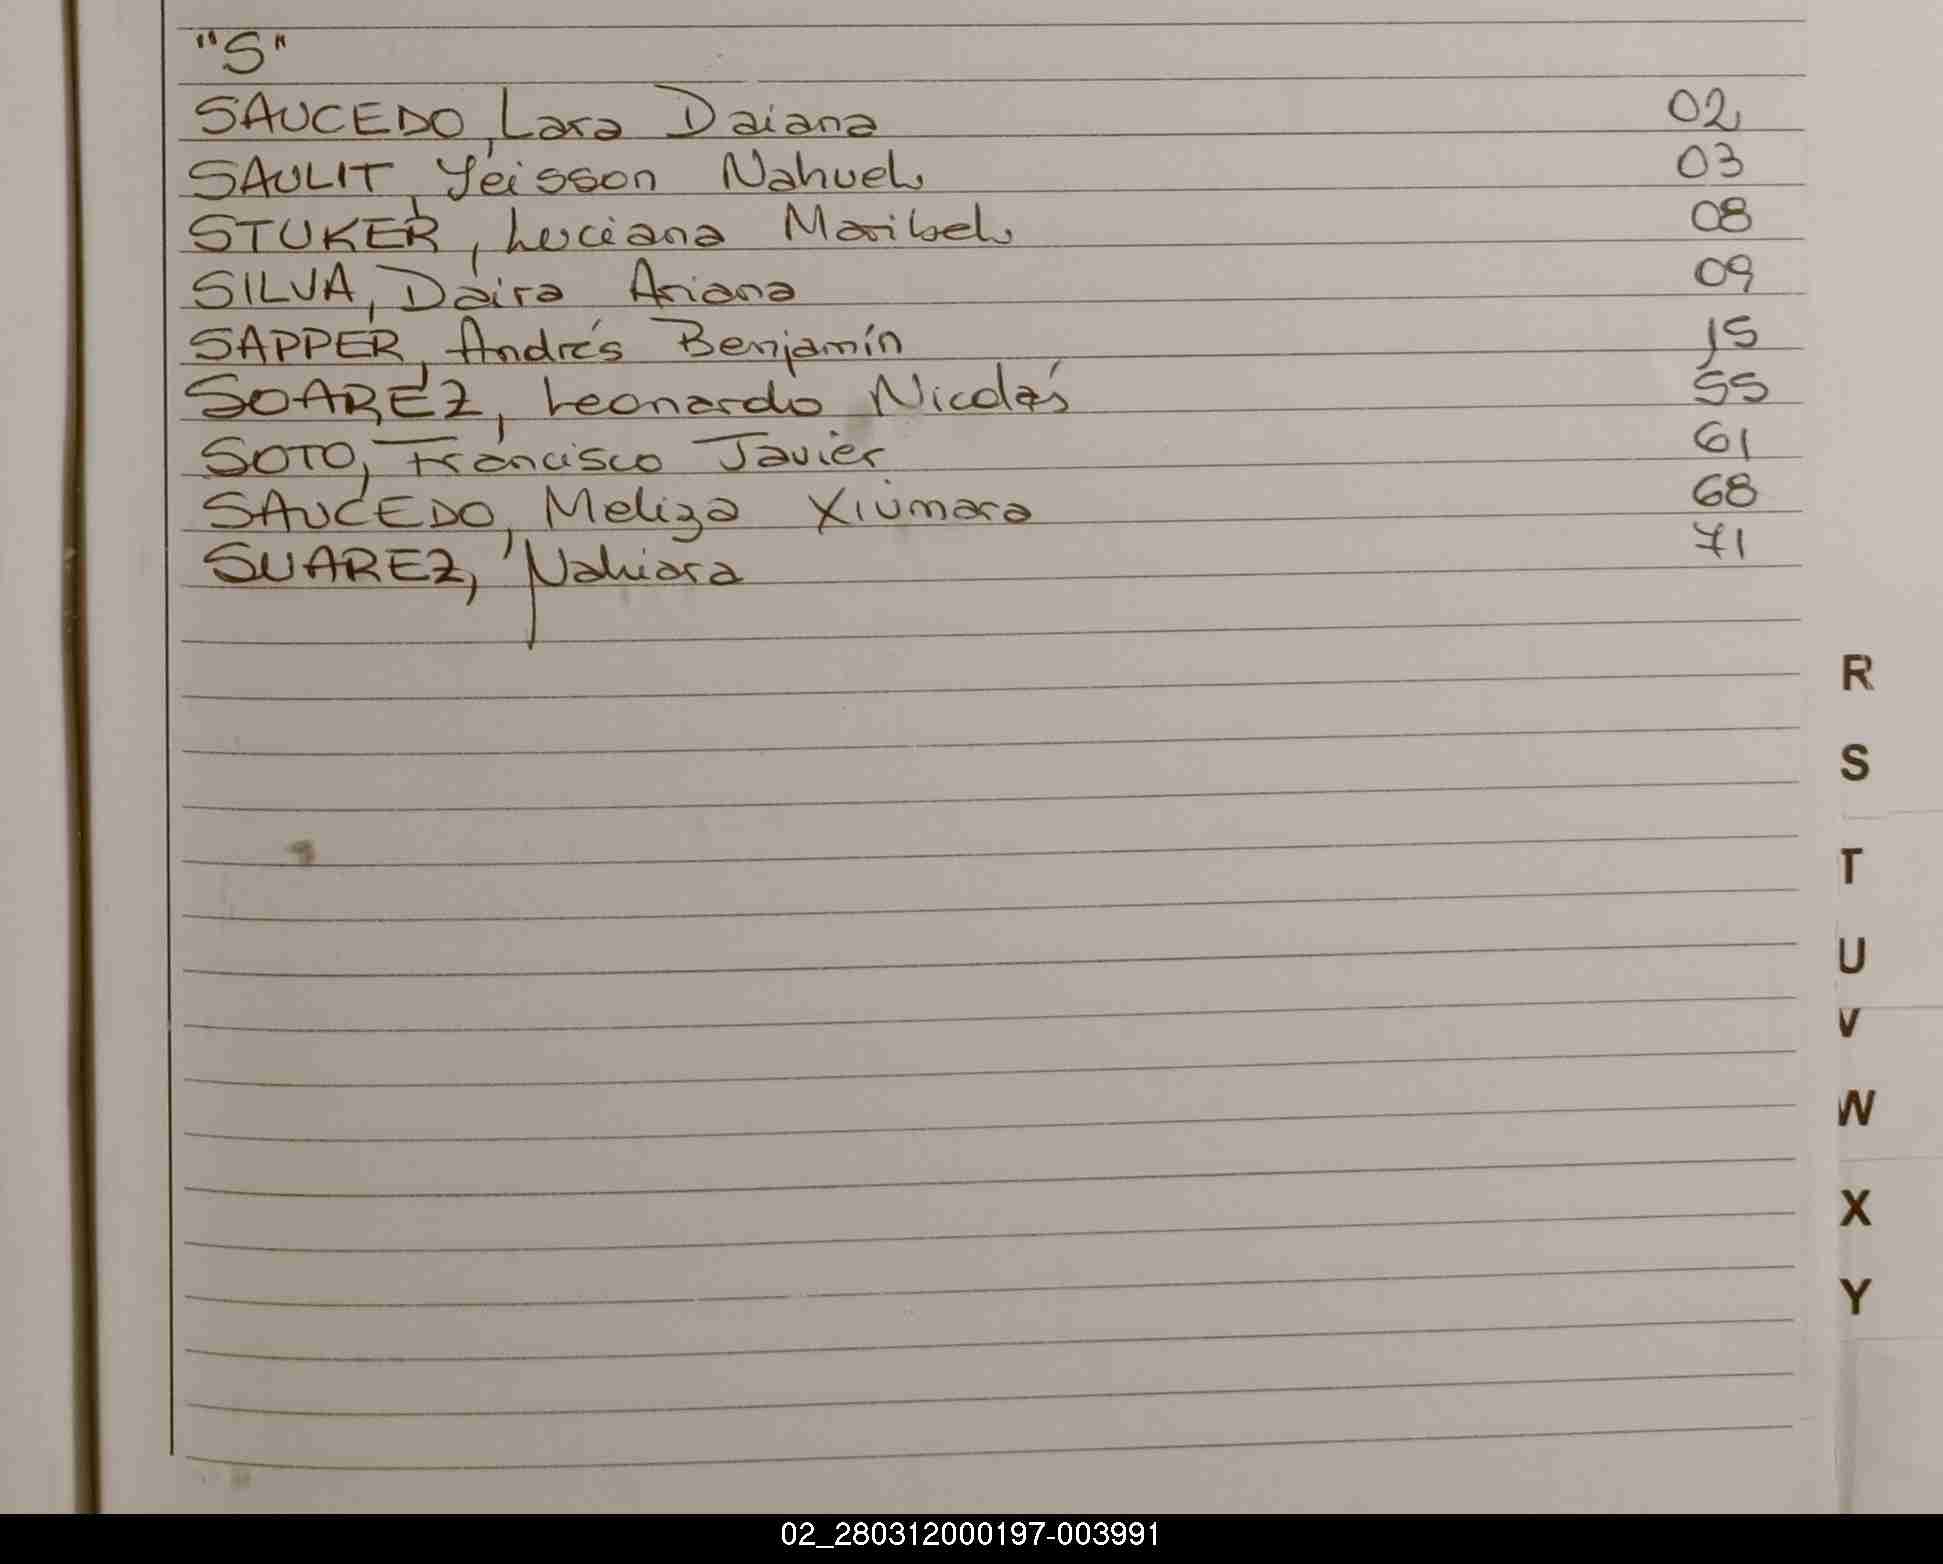 "S"
SAUCEDO, Lara Daiana 02
SAULIT, Yeisson Nahuel 03
STUKER, Luciana Maribel 08
SILVA, Daira Ariana 09
SAPPER, Andrés Benjamín 15
SOAREZ, Leonardo Nicolás 55
SOTO, Francisco Javier 61
SAUCEDO, Meliza Xiumara 68
SUAREZ, Nahiara 71
R
S
T
U
V
W
X
Y
02_280312000197-003991